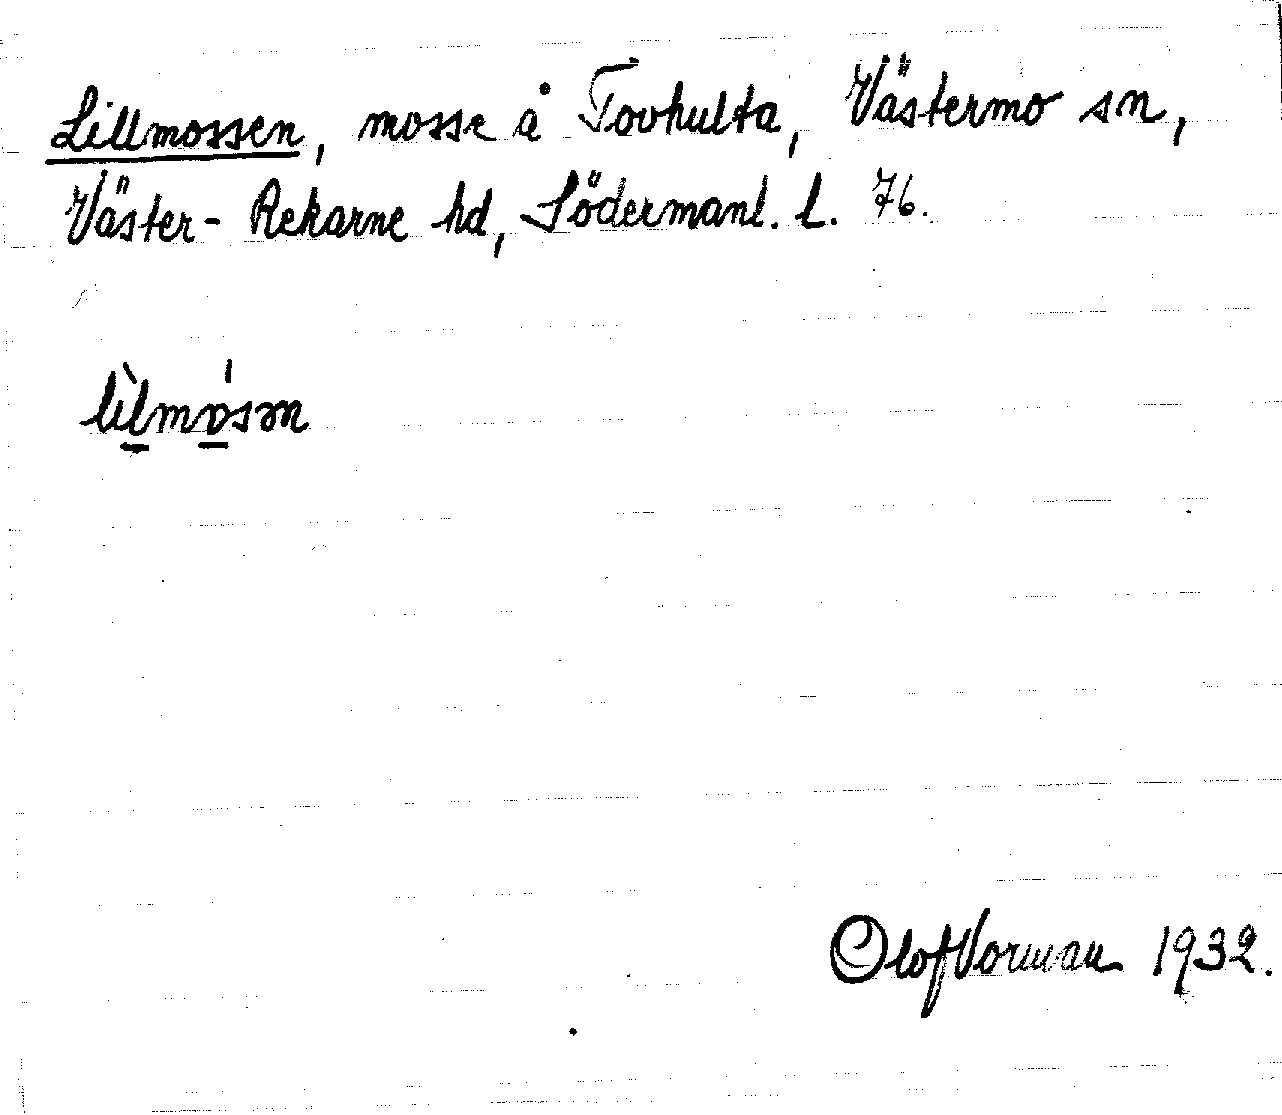 Lillmossen, mosse å Tovhulta, Västermo sn,
Väster-Rekarne hd, Södermanl. l. 76.
lìlmósən
Olof Vorman 1932.